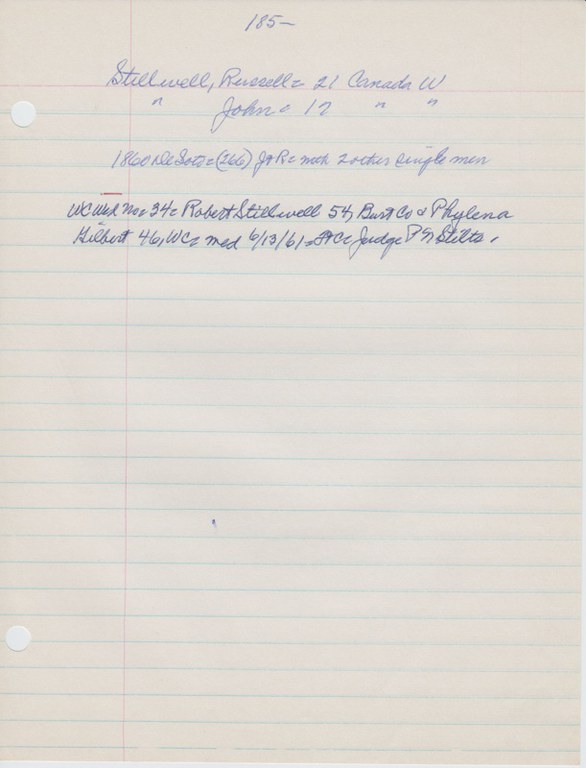 185-
Stillwell, Russell = 21 Canada W
" John = 17 " "
1860 DeSoto = (266) J & R = with 2 other single men
WC Wed No = 34 = Robert Stillwell 54, Burt Co & Phylena
Hilbert 46, WC = med 6/13/61 = Ft C = Judge P G Stilts.